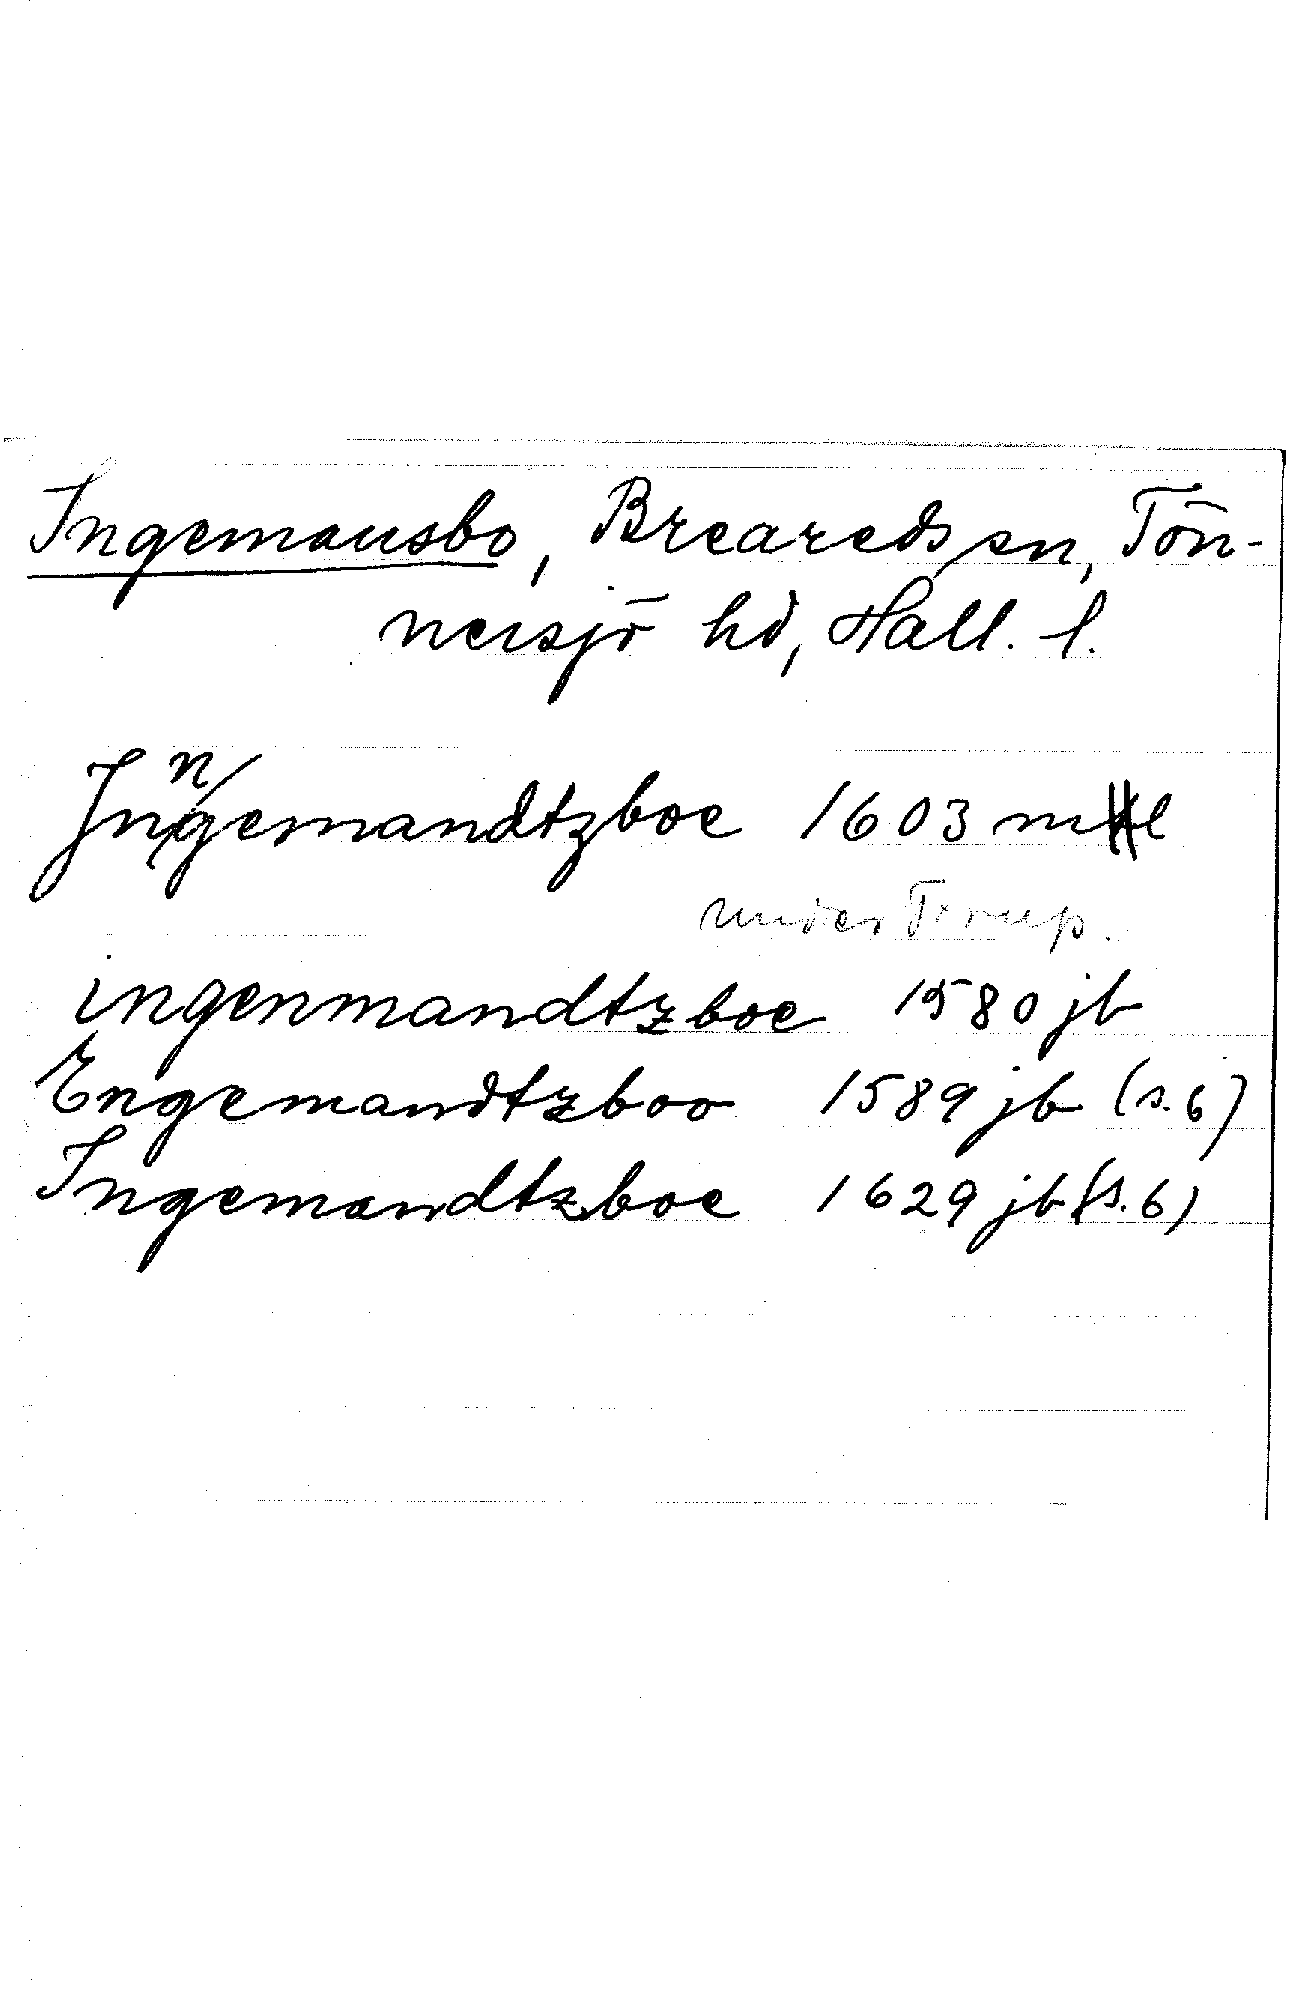 Ingemansbo, Breareds sn, Tön-
nersjö hd, Hall. l.
Jngemandtzboe 1603 ml
under Tirup.
ingenmandtzboe 1580 jb
Engemandtzboo 1589 jb (s. 6)
Ingemandtzboe 1629 jb (s. 6)